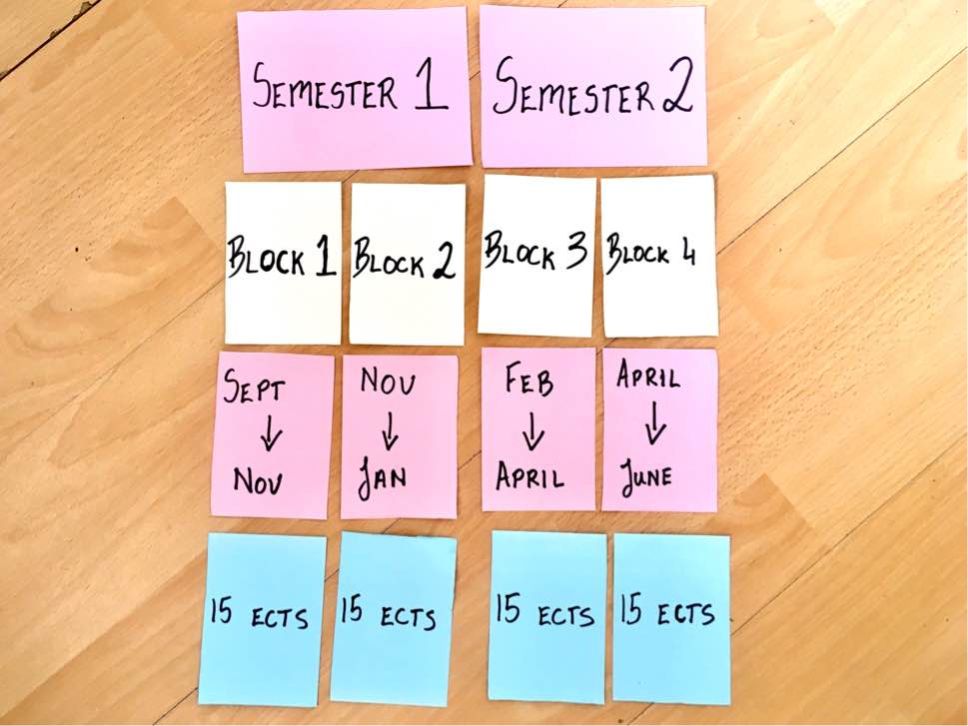 SEMESTER 1
SEMESTER 2
BLOCK 1
BLOCK 2
BLOCK 3
BLOCK 4
SEPT
↓
NOV
NOV
↓
JAN
FEB
↓
APRIL
APRIL
↓
JUNE
15 ECTS
15 ECTS
15 ECTS
15 ECTS